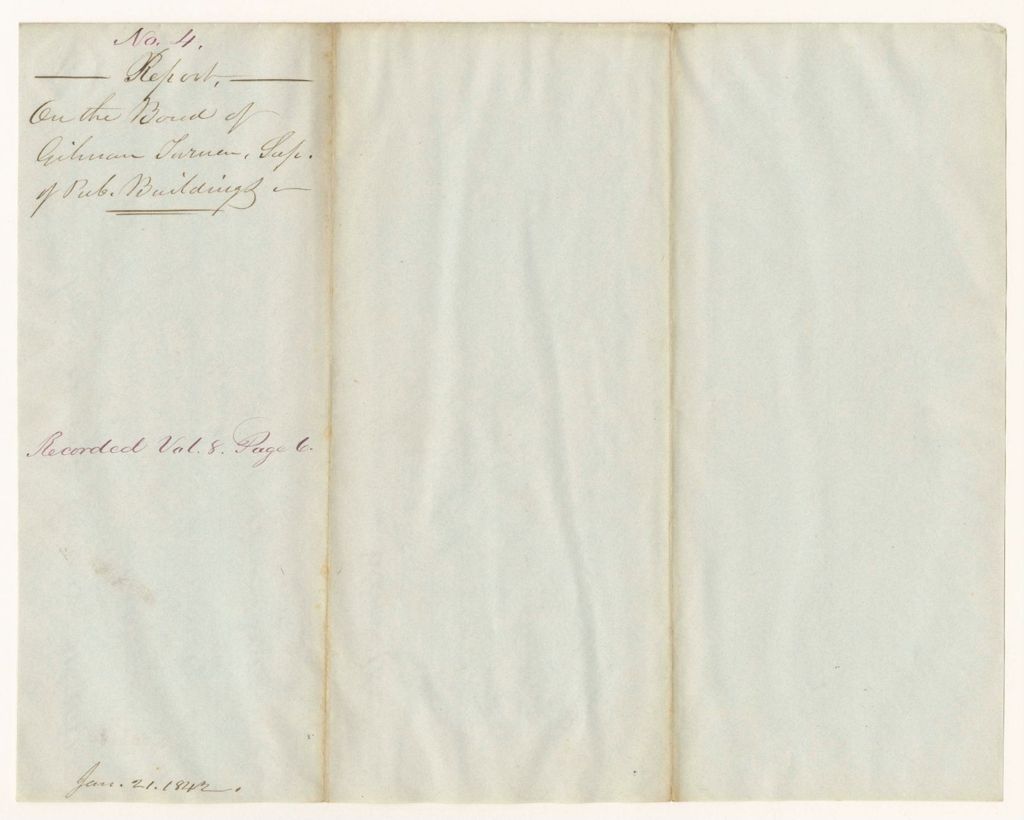 No. 4.
Report,
On the Bond of
Gilman Turner, Sup.
of Pub. Buildings
Recorded Vol. 8. Page 6.
Jan. 21. 1842.